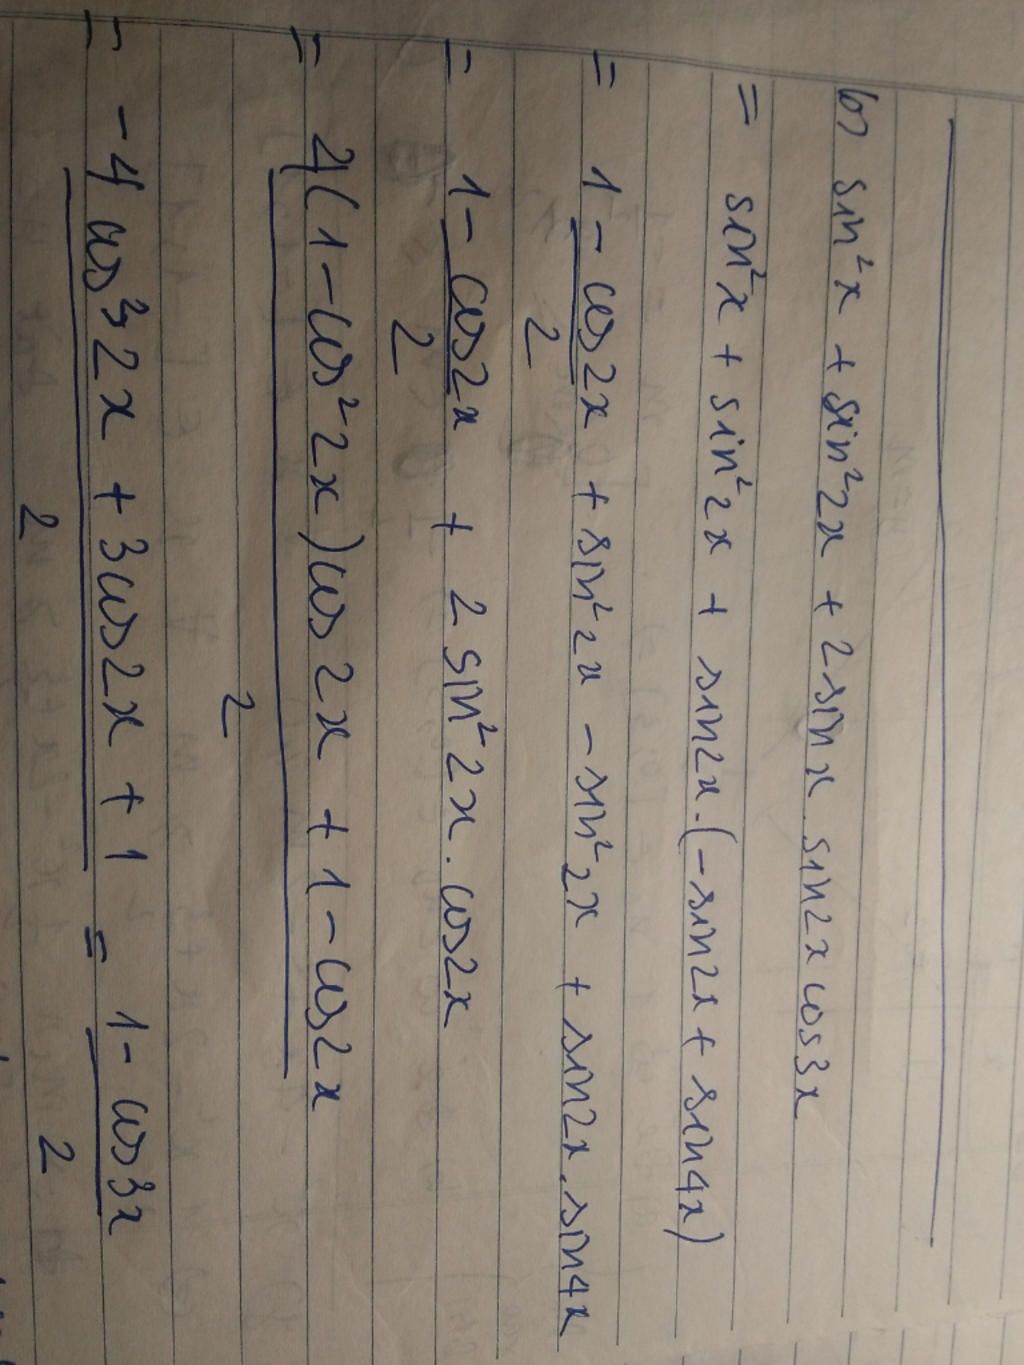 b) sin²x + sin²2x + 2sinx.sin2xcos3x
= sin²x + sin²2x + sin2x.(-sin2x + sin4x)
= (1-cos2x)/2 + sin²2x - sin²2x + sin2x.sin4x
= (1-cos2x)/2 + 2sin²2x.cos2x
= (4(1-cos²2x)cos2x + 1-cos2x)/2
= (-4cos³2x + 3cos2x + 1)/2 = (1-cos3x)/2